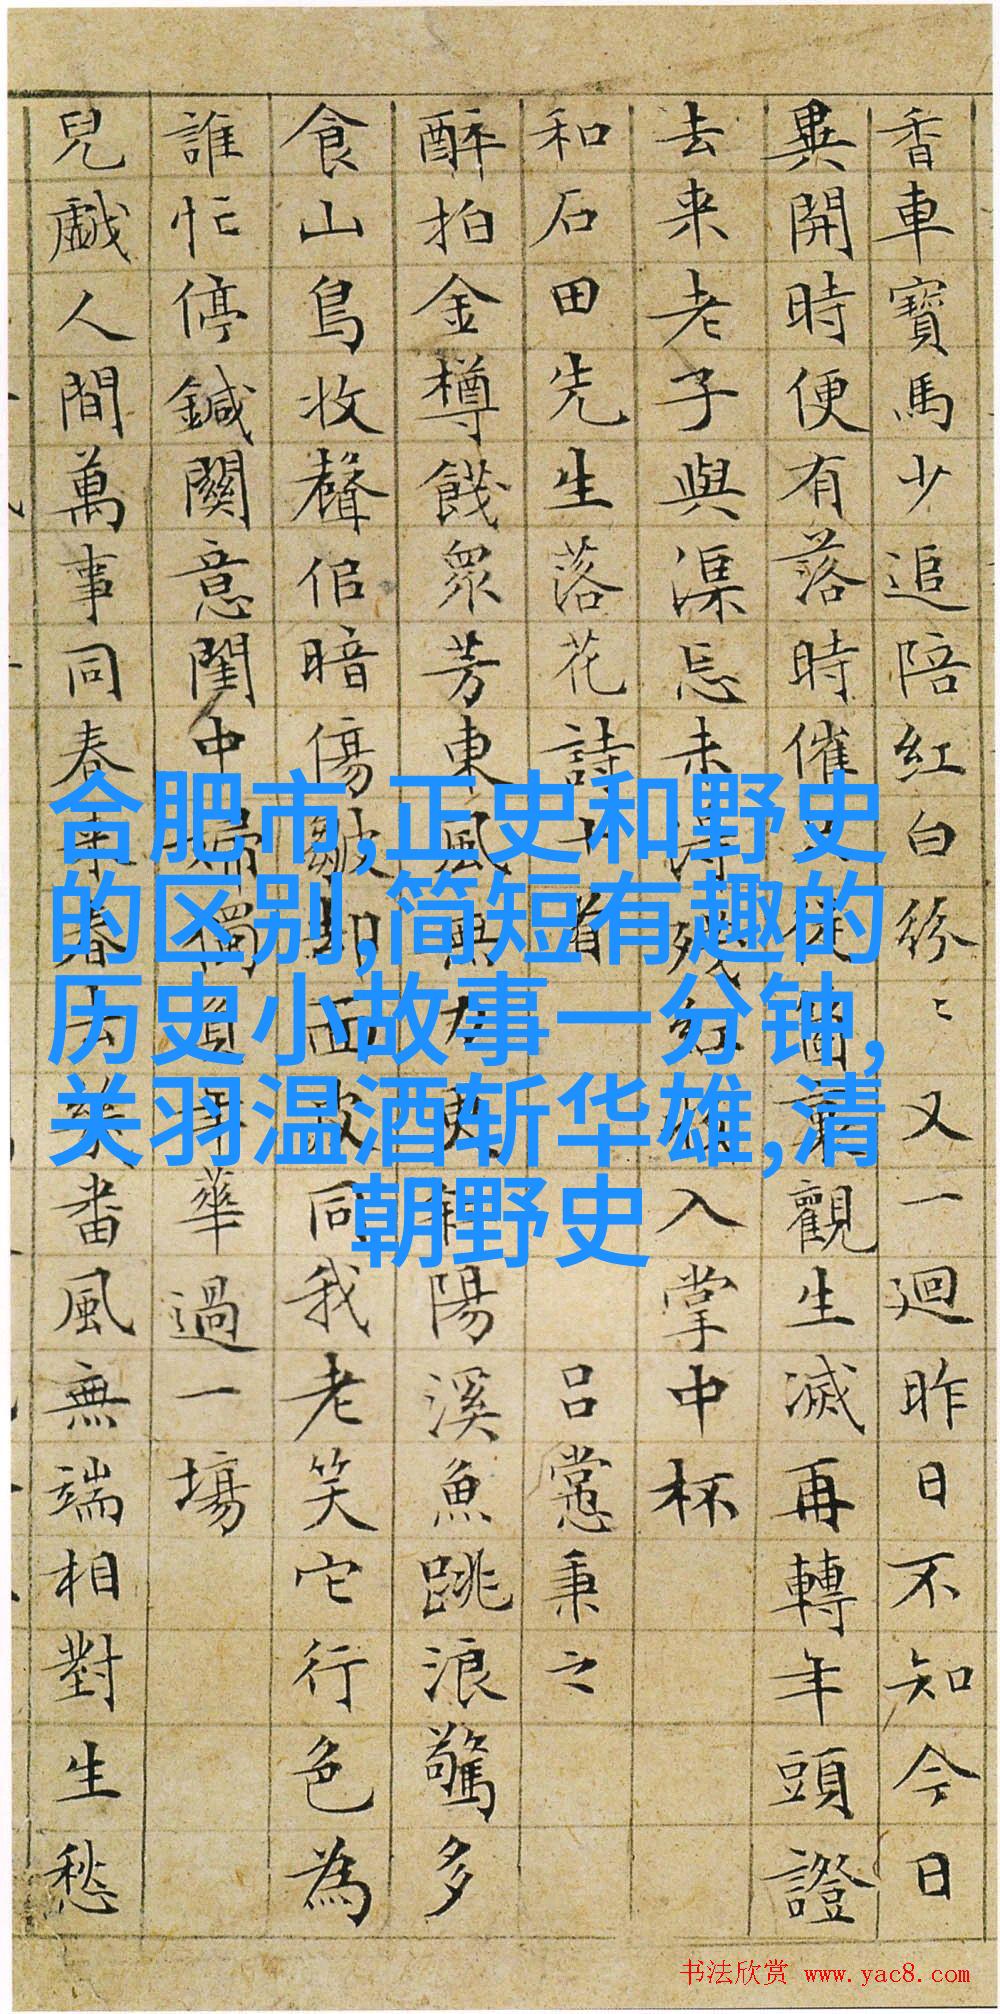 香車寶馬少追陪紅白紛〻又一迴昨日不知今日
異開時便有落時催從箇裏觀生滅再轉年頭證
去来老子與渠忘未得殘紅入掌中杯
和石田先生落花詩十首 呂㦂秉之
醉拍金樽餞眾芳東風無力陽溪魚跳浪驚多
食山鳥收聲倍暗傷皺却面皮同我老笑它行色為
誰忙停鍼關意閨中婦獨負年華過一場
兒戲人間萬事同春來春去幾番風無端相對生愁
合肥市,正史和野史
的区别,简短有趣的
历史小故事一分钟,
关羽温酒斩华雄,清
朝野史
书法欣赏 www.yac8.com